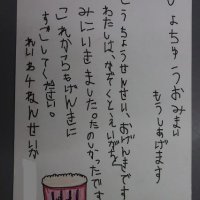 しょちゅうおみまい
もうしあげます
こうちょうせんせい、おげんきです
わたしは、かぞくとえいがを
みにいきました。たのしかったです
これからもげんきに
すごしてください。
れいわ4ねん